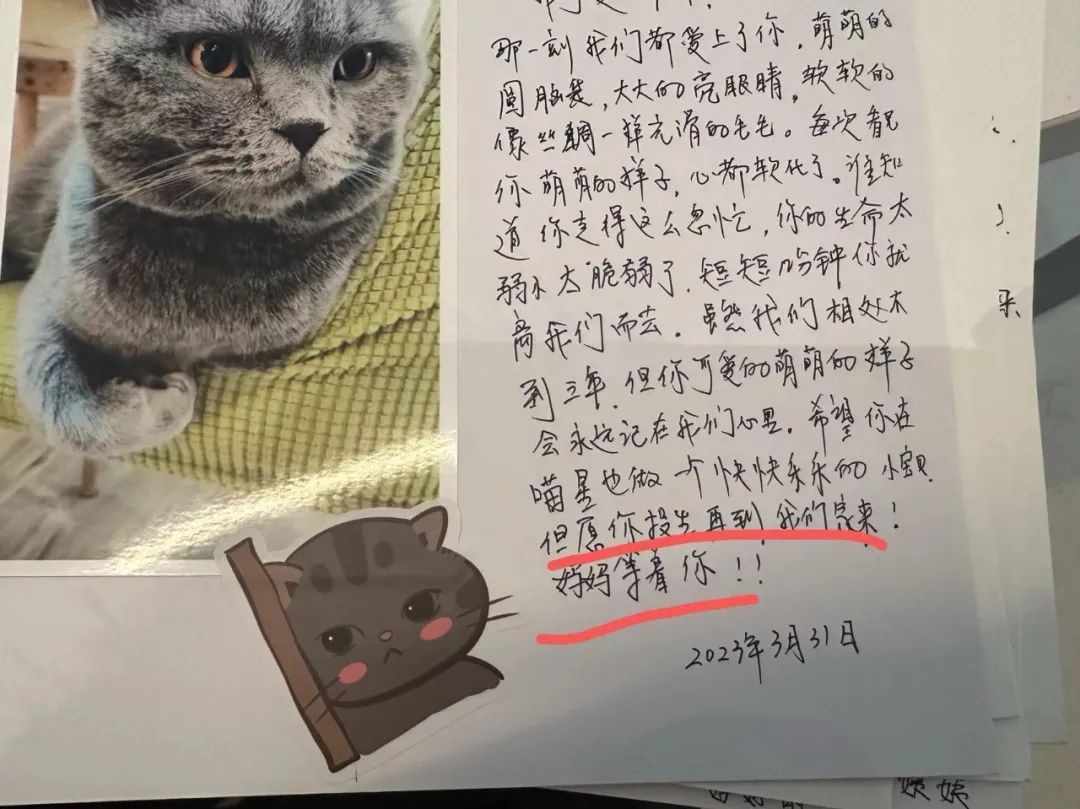 那一刻我们都爱上了你，萌萌的
圆脑袋，大大的亮眼睛，软软的
像丝绸一样光滑的毛毛。每次看见
你萌萌的样子，心都软化了。谁知
道你走得这么忽忙，你的生命太
弱小太脆弱了，短短几分钟你就
离我们而去。虽然我们相处不
到三年，但你可爱的萌萌的样子
会永远记在我们心里。希望你在
喵星也做一个快快乐乐的小宝贝
但愿你投生再到我们家来！
妈妈等着你！！
2023年3月31日
乐
姨姨